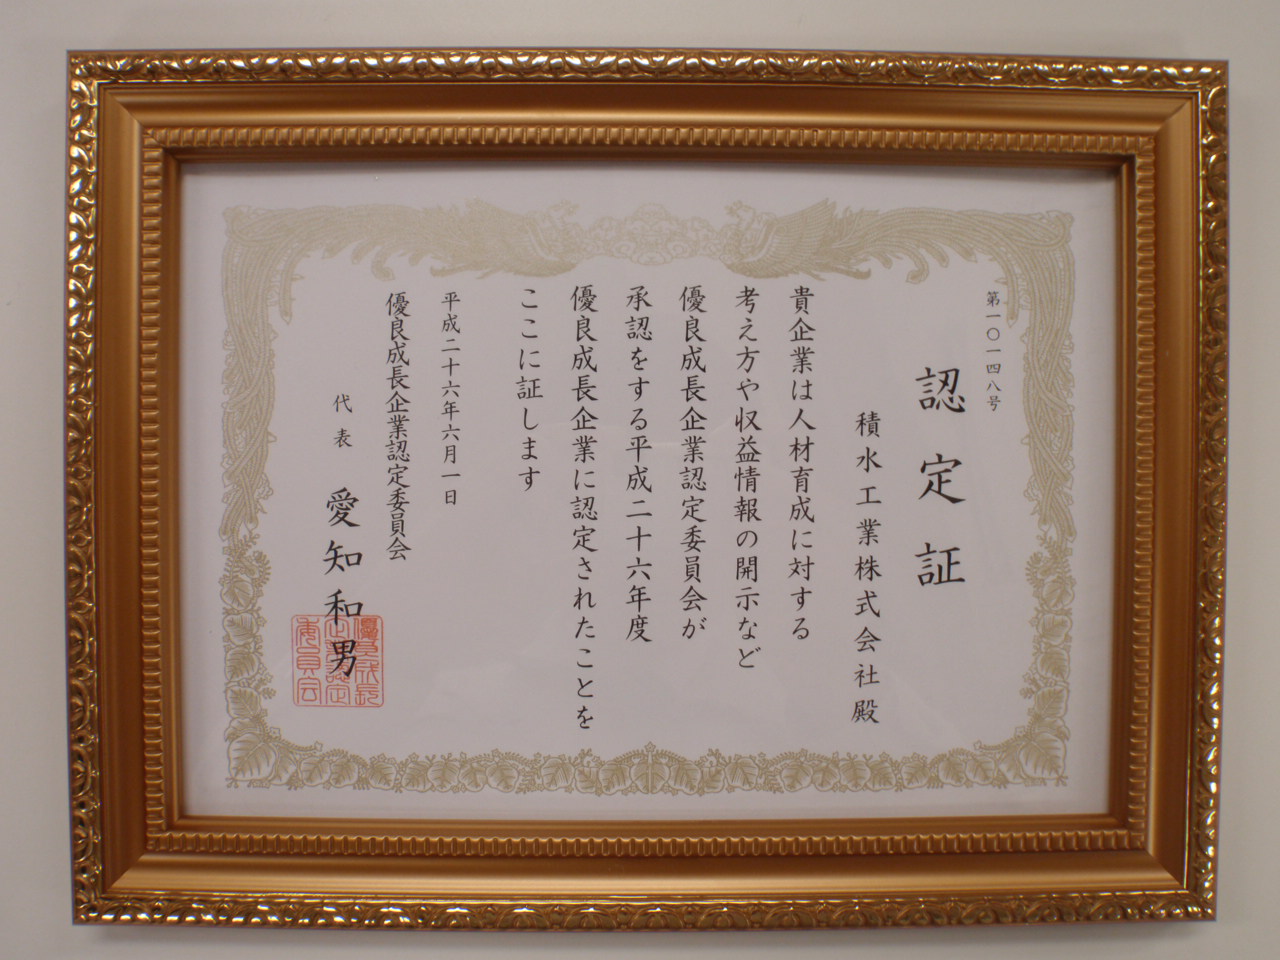 第一〇一四八号
認定証
積水工業株式会社殿
貴企業は人材育成に対する
考え方や収益情報の開示など
優良成長企業認定委員会が
承認をする平成二十六年度
優良成長企業に認定されたことを
ここに証します
平成二十六年六月一日
優良成長企業認定委員会
代表 愛知和男
優良成長
企業認定
委員会